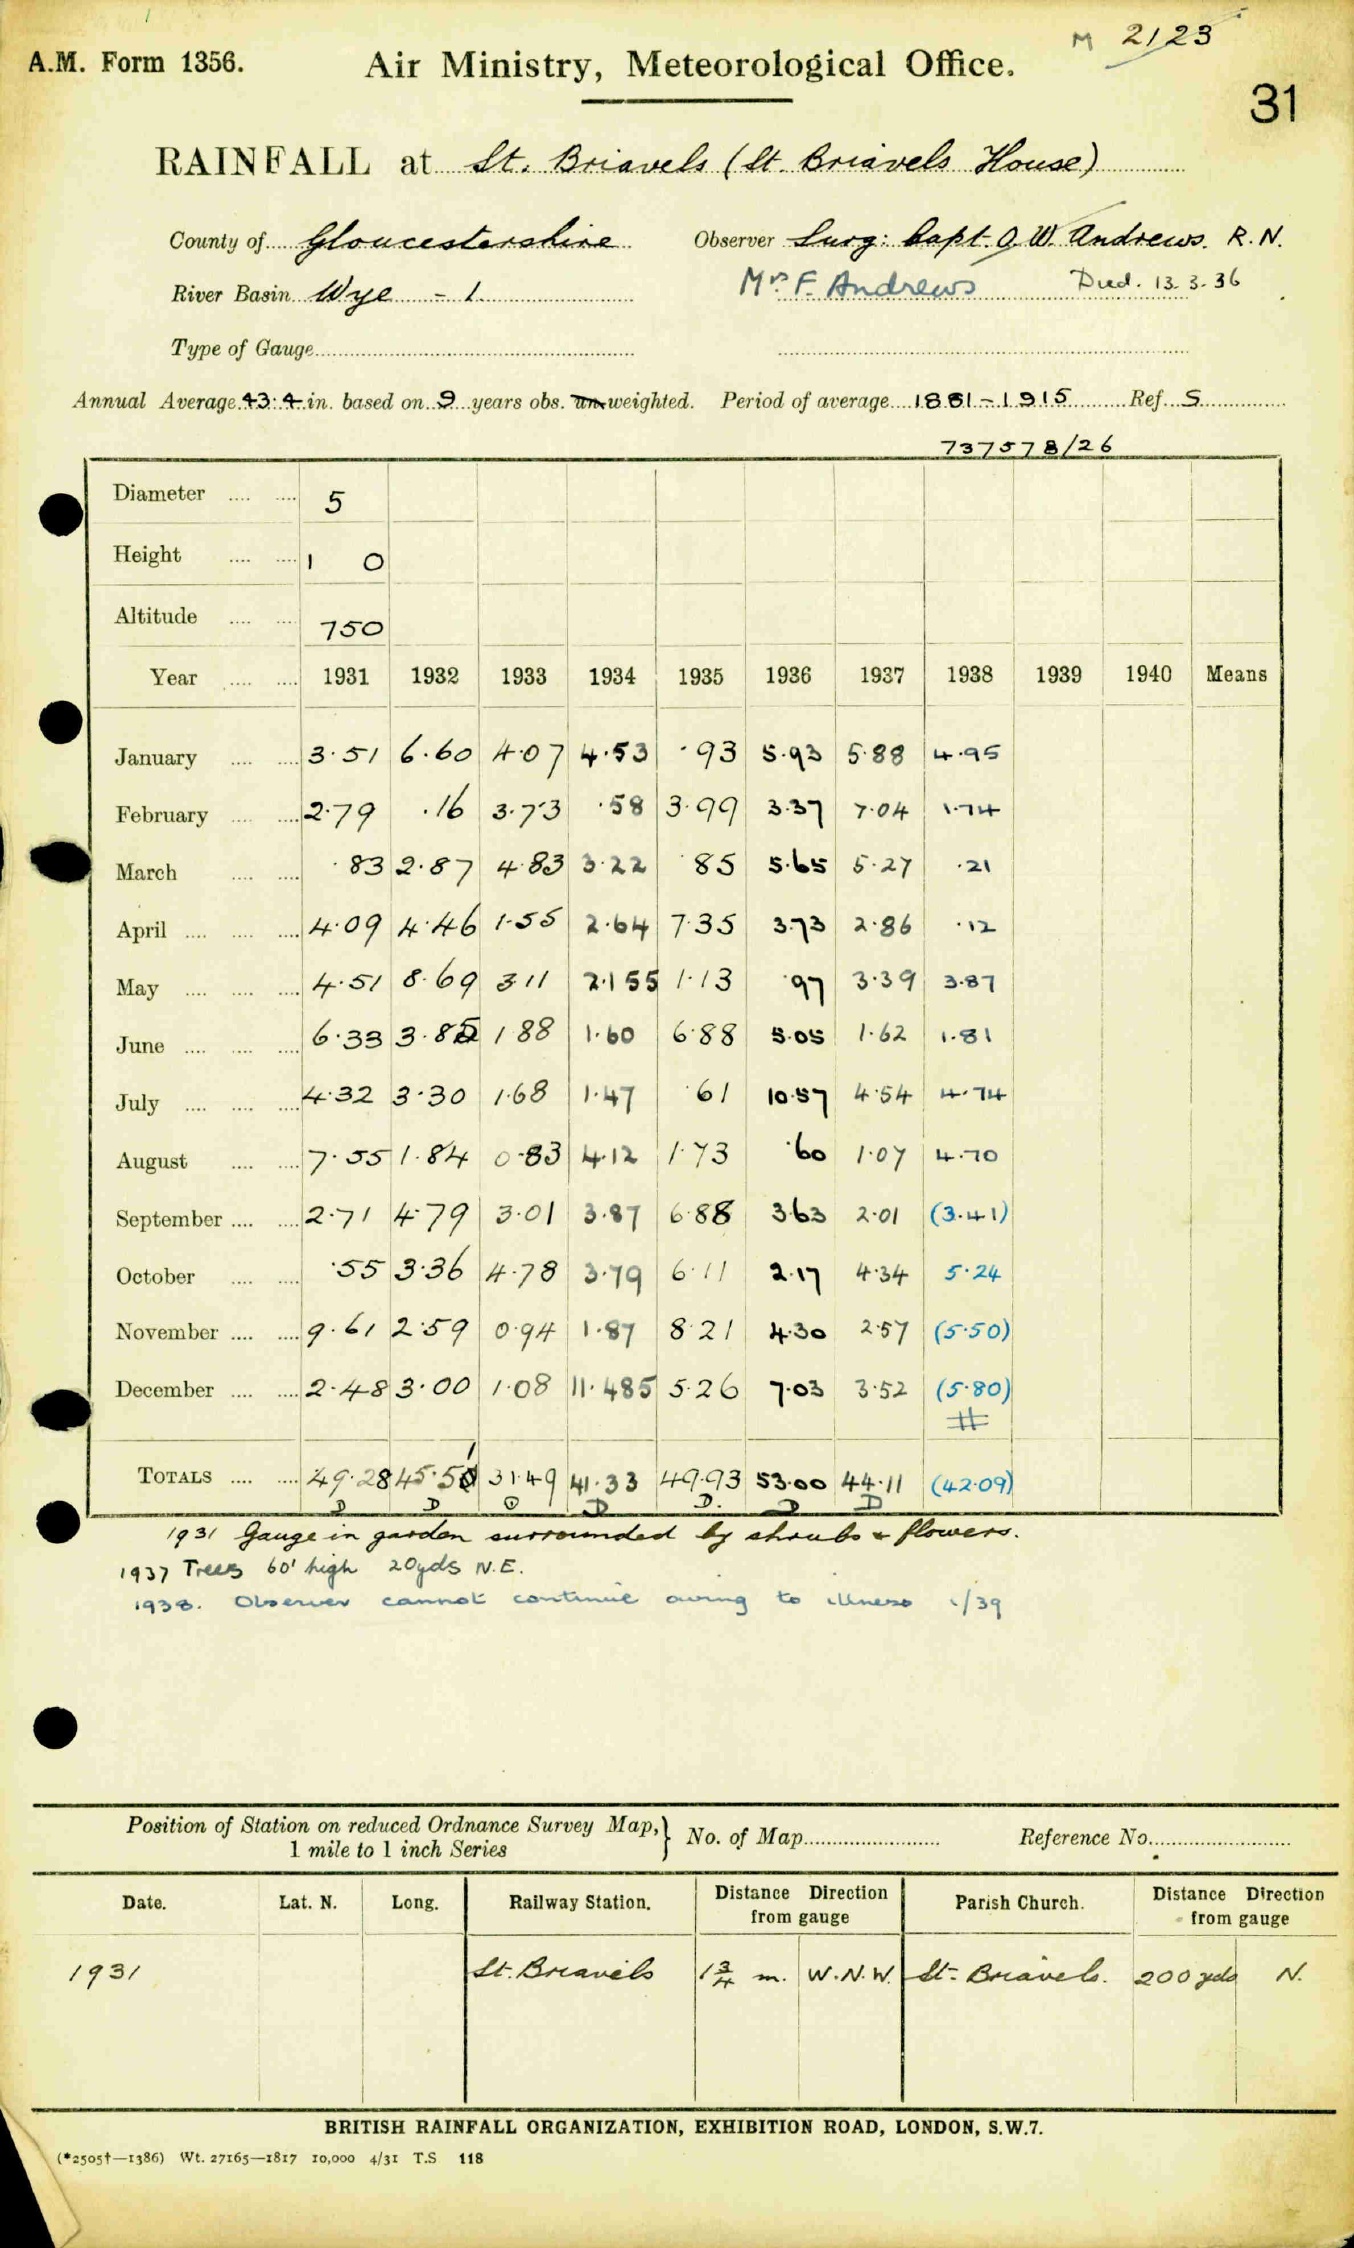 M 2123
A.M. Form 1356. Air Ministry, Meteorological Office.
31
RAINFALL at St. Briavels (St. Briavels House)
County of Gloucestershire Observer Surg: Capt. O. W. Andrews. R.N.
River Basin Wye - 1. Mrs F. Andrews Died. 13.3.36
Type of Gauge
Annual Average 43.4 in. based on 9 years obs. un weighted. Period of average 1881-1915 Ref. S
737578/26
Diameter .... .... 5
Height .... .... 1 0
Altitude .... .... 750
Year .... .... 1931 1932 1933 1934 1935 1936 1937 1938 1939 1940 Means
January .... .... 3.51 6.60 4.07 4.53 .93 5.93 5.88 4.95
February .... .... 2.79 .16 3.73 .58 3.99 3.37 7.04 1.74
March .... .... .83 2.87 4.83 3.22 .85 5.65 5.27 .21
April .... .... .... 4.09 4.46 1.55 2.64 7.35 3.73 2.86 .12
May .... .... .... 4.51 8.69 3.11 2.155 1.13 .97 3.39 3.87
June .... .... .... 6.33 3.85 1.88 1.60 6.88 5.05 1.62 1.81
July .... .... .... 4.32 3.30 1.68 1.47 .61 10.57 4.54 4.74
August .... .... 7.55 1.84 0.83 4.12 1.73 .60 1.07 4.70
September .... .... 2.71 4.79 3.01 3.87 6.88 3.63 2.01 (3.41)
October .... .... .55 3.36 4.78 3.79 6.11 2.17 4.34 5.24
November .... .... 9.61 2.59 0.94 1.87 8.21 4.30 2.57 (5.50)
December .... .... 2.48 3.00 1.08 11.485 5.26 7.03 3.52 (5.80)
#
TOTALS .... .... 49.28 45.51 31.49 41.33 49.93 53.00 44.11 (42.09)
D D D D D. D D
1931 Gauge in garden surrounded by shrubs & flowers.
1937 Trees 60' high 20yds N.E.
1938. Observer cannot continue owing to illness 1/39
Position of Station on reduced Ordnance Survey Map, } No. of Map Reference No.
1 mile to 1 inch Series
Date. Lat. N. Long. Railway Station. Distance Direction from gauge Parish Church. Distance Direction from gauge
1931 St. Briavels 1¾ m. W.N.W. St. Briavels. 200 yds N.
BRITISH RAINFALL ORGANIZATION, EXHIBITION ROAD, LONDON, S.W.7.
(*2505†—1386) Wt. 27165—1817 10,000 4/31 T.S 118